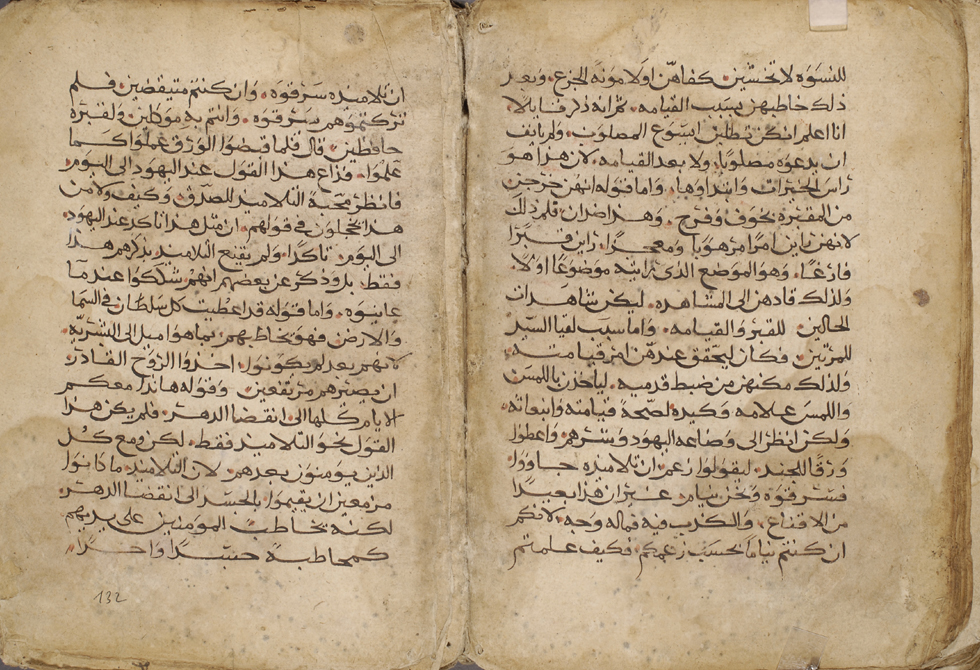 للنسوه لا تخشين. كفاهن اولا مونة الجزع. وبعد
ذلك خاطبهن بسبب القيامه. ثم انه ذكر قايلا.
انا اعلم انكن تطلبن ايسوع المصلوب. ولم يانف
ان يدعوه مصلوبا. ولا بعد القيامه. لان هذا هو
راس الخيرات وابتداوها. واما قوله انهن خرجن
من المقبره بخوف وفرح. وهذا ضدان. فلم ذلك
لانهن راين امرا مرهوبا ومعجزا. راين قبرا
فارغا. وهو الموضع الذى راينه موضوعا اولا.
ولذلك قادهن الى المشاهده. ليكن شاهدات
الحالين للقبر والقيامه. واما سبب لقيا السيد
للمرتين. فكان ليحقق عندهن امر قيامته.
ولذلك مكنهن من ضبط قدميه. لياخذن باللمس
واللمس علامه وكيده لصحة قيامته وانبعاثه
ولكن انظر الى وضاعه اليهود وشرهم. واعطوا
ورقا للجند. ليقولوا زعم. ان تلاميذه جاووا.
فسرقوه ونحن نيام. غير ان هذا بعيدا
من الاقناع. والكذب فيه فما له وجه. لانكم
ان كنتم نياما بحسب زعمكم. فكيف علمتم
ان تلاميذه سرقوه. وان كنتم متيقضين. فلم
تركتموهم سرقوه. وانتم به موكلين. ولقبره
حافظين. قال فلما قبضوا الورق عملوا كما
علموا. وذاع هذا القول عند اليهود الى اليوم
فانظر محبة التلاميذ للصدق. وكيف ولا من
هذا يخجلون في قولهم. ان مثل هذا تاكد عند اليهود.
الى اليوم تاكدا. ولم يقنع التلاميذ بذكرهم هذا
فقط. بل وذكر عن بعضهم انهم شككوا عند ما
عاينوه. واما قوله قد اعطيت كل سلطان في السما
والارض. فهو يخاطبهم بما هو اميل الى البشريه.
لانهم بعد لم يكونوا. اخذوا الروح القادر
ان يصيرهم مرتفعين. وقوله هانذا معكم
الايام كلها الى انقضا الدهر. فلم يكن هذا
القول نحو التلاميذ فقط. لكن ومع كل
الذين يومنون بعدهم. لان التلاميذ ما كانوا
مزمعين ان يقيموا بالجسد الى انقضا الدهر.
لكنه يخاطب المومنين على يديهم
كمخاطبة جسدا واحدا.
132